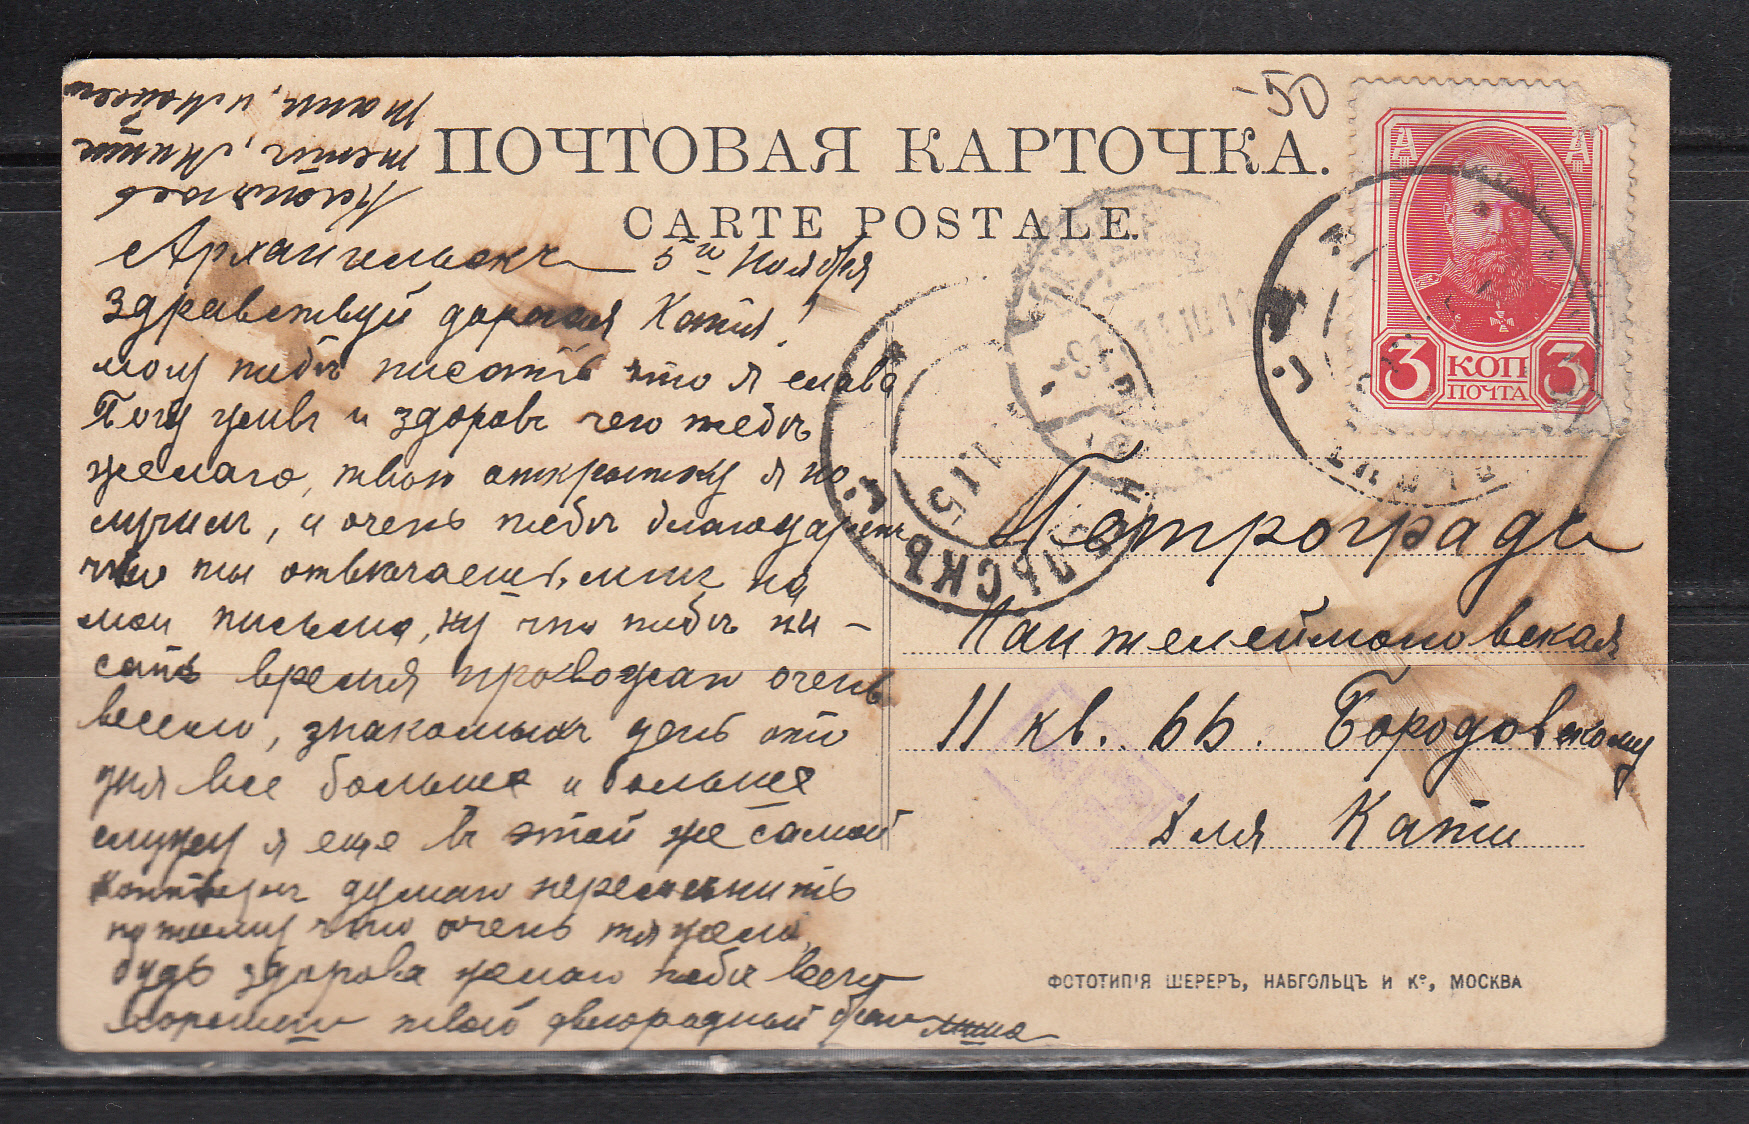 -50
ПОЧТОВАЯ КАРТОЧКА.
CARTE POSTALE.
А А
3 КОП 3
ПОЧТА
Архангельскъ 5го Ноября
Здравствуй дорогая Катя!
могу тебѣ писать что я слава
Богу живъ и здоровъ чего тебѣ
желаю, твою открытку я по
лучилъ, и очень тебѣ благодарен
что ты отвѣчаешь мнѣ на
мои письма, ну что тебѣ пи-
сать время провожаю очень
весело, знакомыхъ день ото
дня все больше и больше
служу я еще въ этой же самой
конторѣ думаю переменить
потому что очень тяжело,
будь здорова желаю тебѣ всего
хорошего твой двоюродный брат Миша
тетѣ, Митѣ
Петроградъ
Пантелеймоновская
11 кв. 66. Бородовскому
Для Кати
ЛЬСКЪ
11 15
ФОТОТИПІЯ ШЕРЕРЪ, НАБГОЛЬЦЪ И Кº, МОСКВА